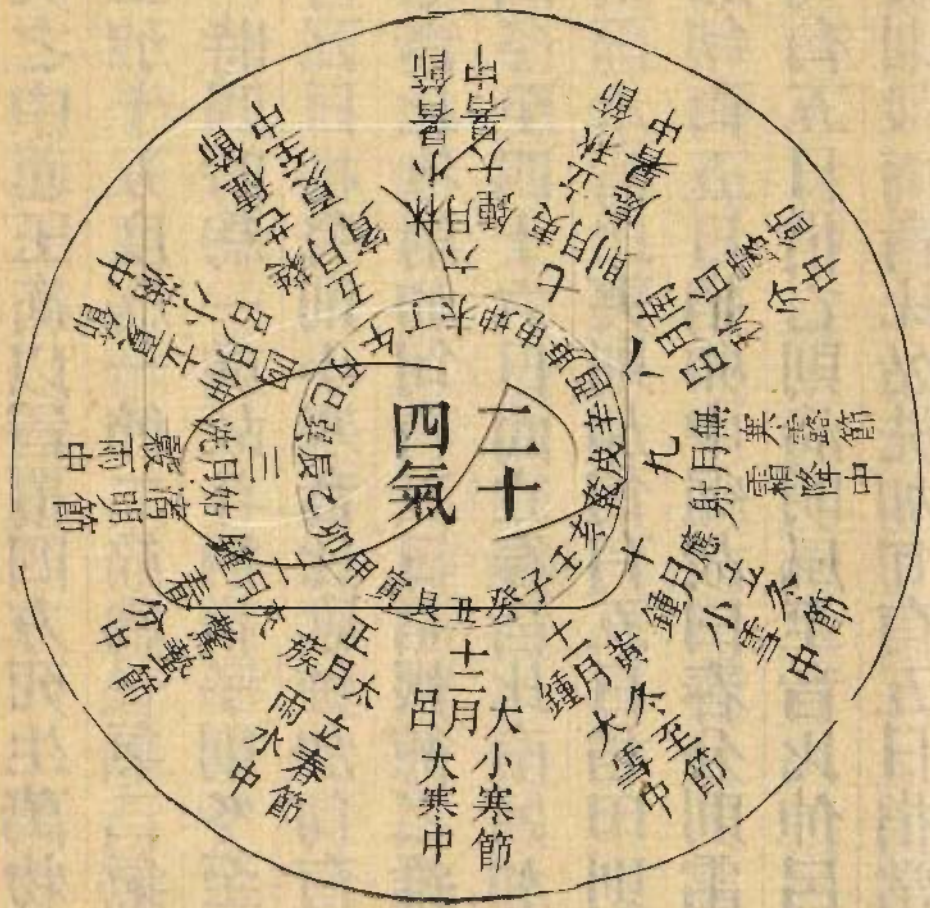 二十
四氣
子癸丑艮寅甲卯乙辰巽巳丙午丁未坤申庚酉辛戌乾亥壬
正月太蔟
立春節
雨水中
二月夾鍾
驚蟄節
春分中
三月姑洗
清明節
穀雨中
四月仲呂
立夏節
小滿中
五月蕤賓
芒種節
夏至中
六月林鍾
小暑節
大暑中
七月夷則
立秋節
處暑中
八月南呂
白露節
秋分中
九月無射
寒露節
霜降中
十月應鍾
立冬節
小雪中
十一月黃鍾
冬至節
大雪中
十二月大呂
小寒節
大寒中